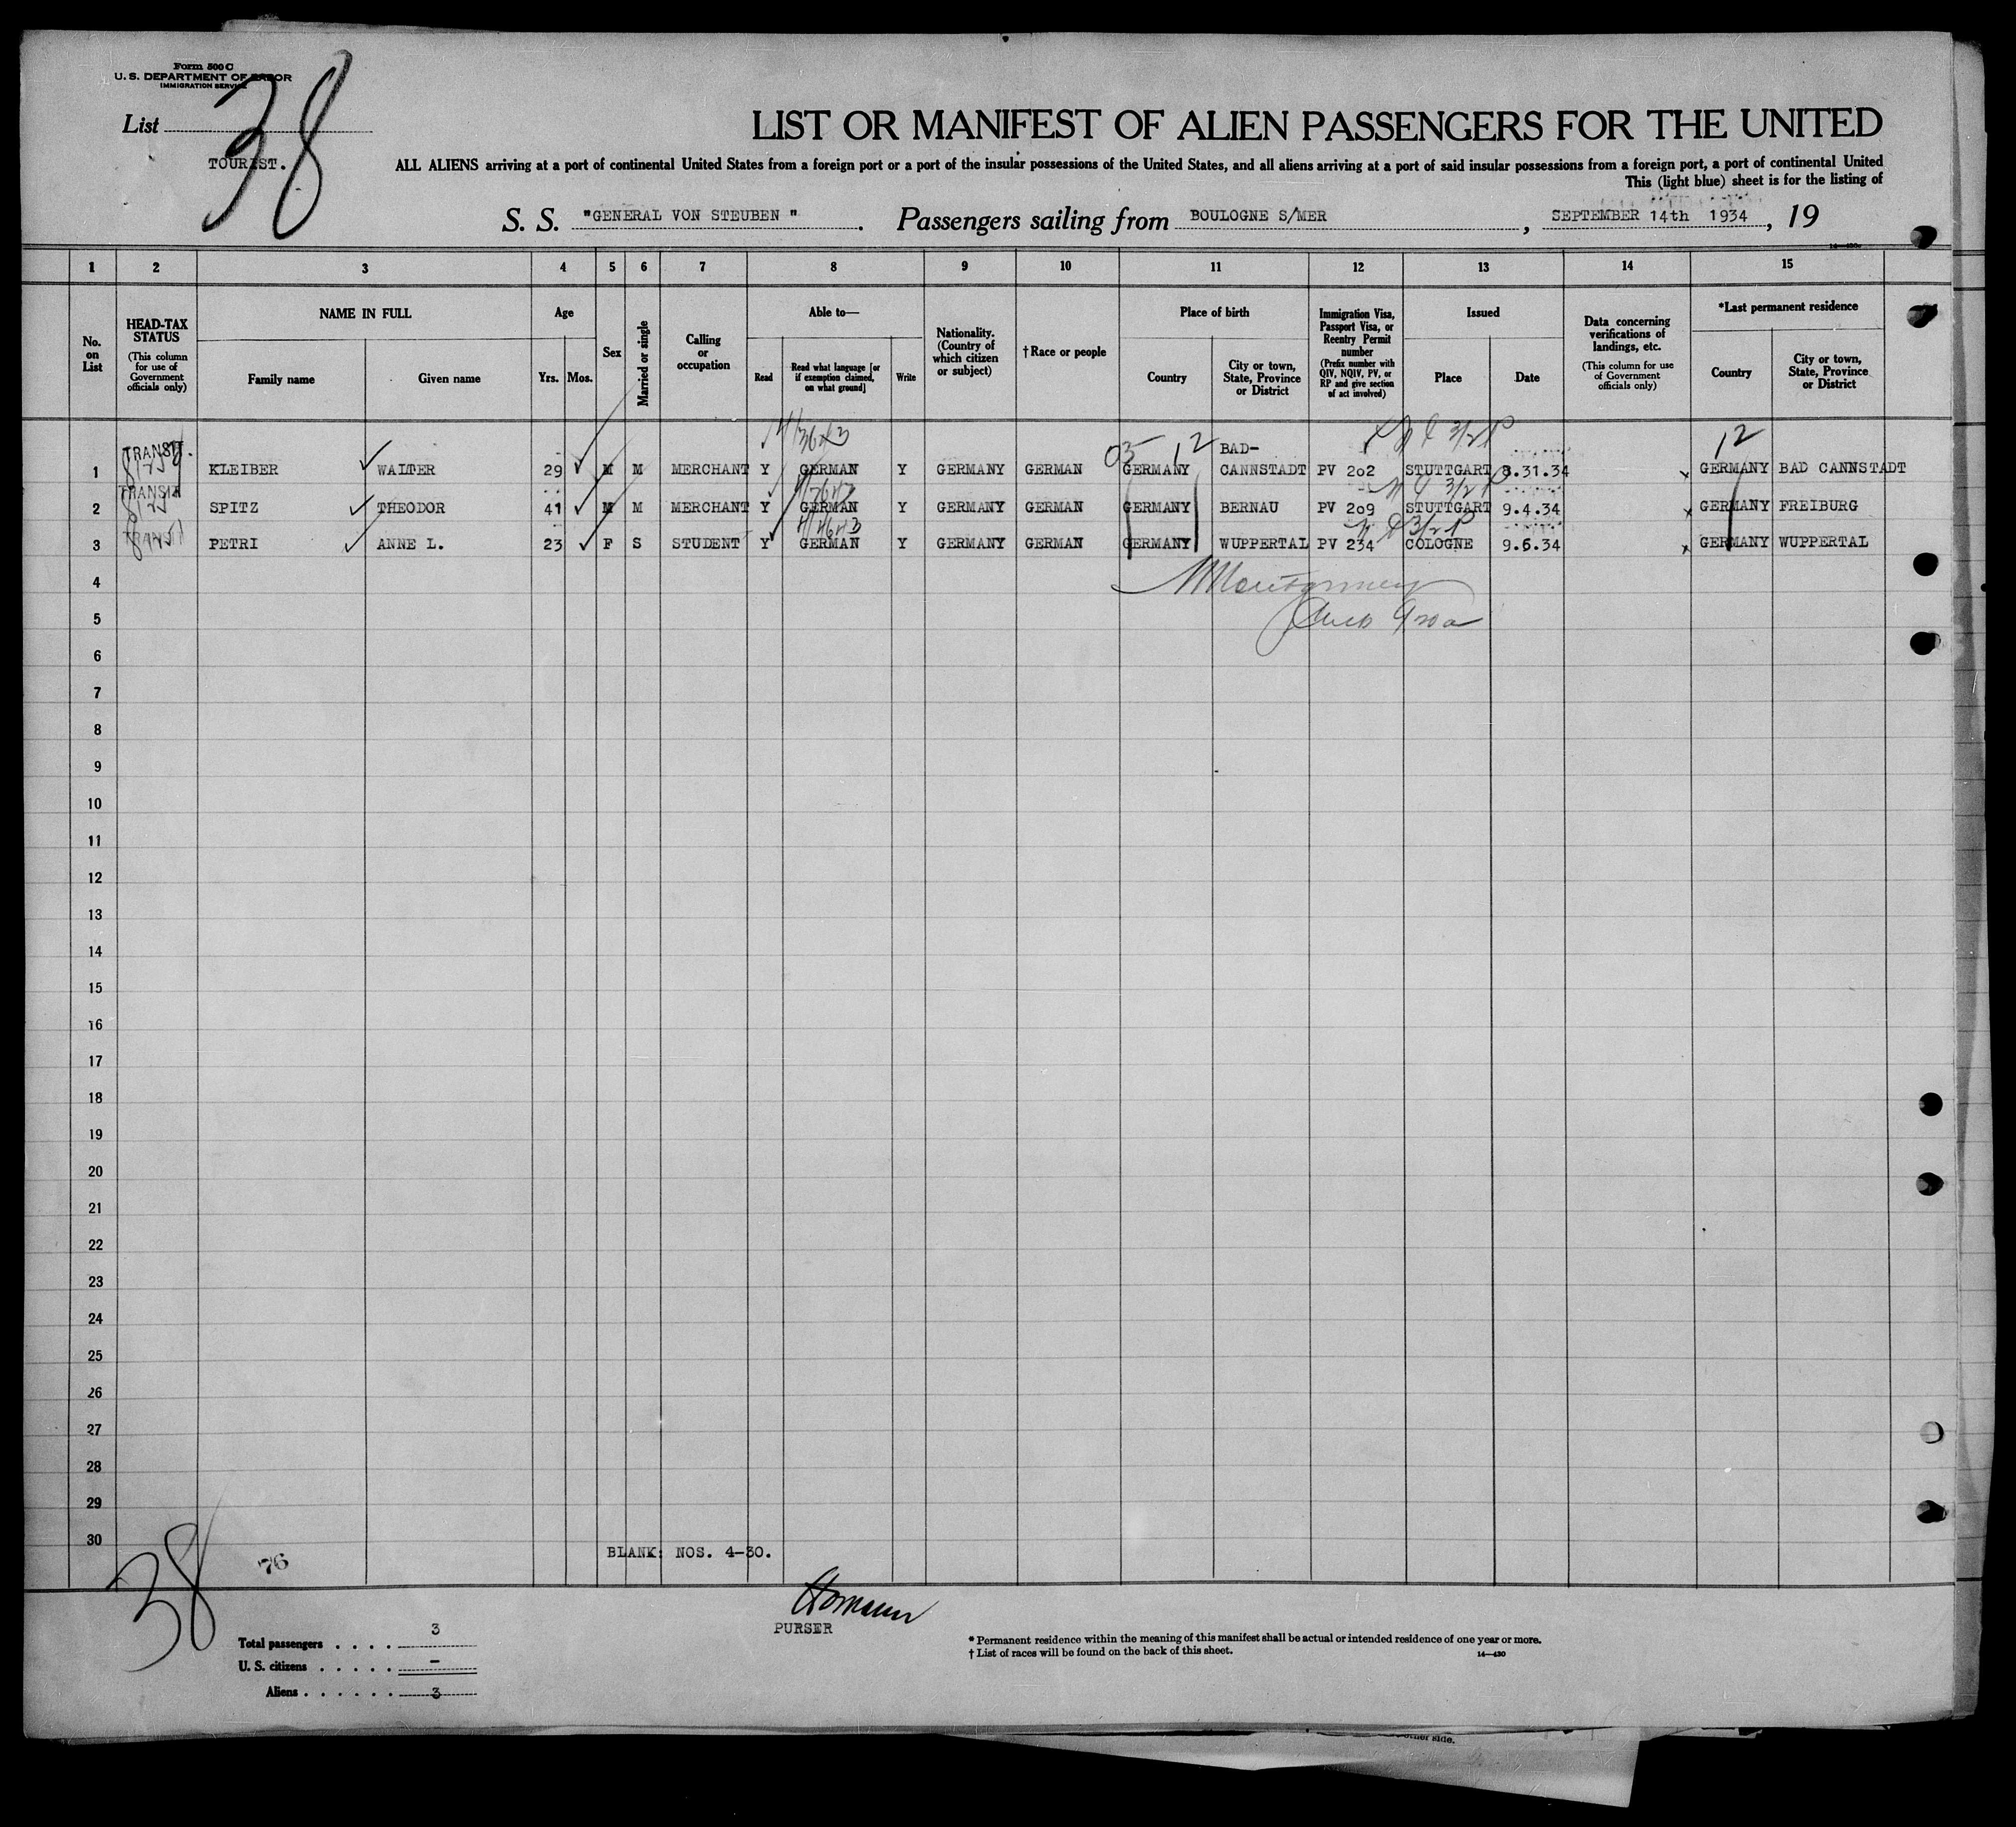 Form 500 C
U. S. DEPARTMENT OF LABOR
IMMIGRATION SERVICE
List 38
TOURIST.
LIST OR MANIFEST OF ALIEN PASSENGERS FOR THE UNITED
ALL ALIENS arriving at a port of continental United States from a foreign port or a port of the insular possessions of the United States, and all aliens arriving at a port of said insular possessions from a foreign port, a port of continental United
This (light blue) sheet is for the listing of
S. S. "GENERAL VON STEUBEN". Passengers sailing from BOULOGNE S/MER, SEPTEMBER 14th 1934, 19
14—430
1 2 3 4 5 6 7 8 9 10 11 12 13 14 15
No. on List
HEAD-TAX STATUS
(This column for use of Government officials only)
NAME IN FULL
Family name Given name
Age
Yrs. Mos.
Sex
Married or single
Calling or occupation
Able to—
Read
Read what language [or if exemption claimed, on what ground]
Write
Nationality. (Country of which citizen or subject)
† Race or people
Place of birth
Country
City or town, State, Province or District
Immigration Visa, Passport Visa, or Reentry Permit number
(Prefix number with QIV, NQIV, PV, or RP and give section of act involved)
Issued
Place Date
Data concerning verifications of landings, etc.
(This column for use of Government officials only)
*Last permanent residence
Country
City or town, State, Province or District
03 12 12
TRANSIT. BAD-
1 KLEIBER WALTER 29 M M MERCHANT Y GERMAN Y GERMANY GERMAN GERMANY CANNSTADT PV 202 STUTTGART 8.31.34 x GERMANY BAD CANNSTADT
TRANSIT
2 SPITZ THEODOR 41 M M MERCHANT Y GERMAN Y GERMANY GERMAN GERMANY BERNAU PV 209 STUTTGART 9.4.34 x GERMANY FREIBURG
TRANSIT
3 PETRI ANNE L. 23 F S STUDENT Y GERMAN Y GERMANY GERMAN GERMANY WUPPERTAL PV 234 COLOGNE 9.6.34 x GERMANY WUPPERTAL
4
Montgomery
5
6
7
8
9
10
11
12
13
14
15
16
17
18
19
20
21
22
23
24
25
26
27
28
29
30
BLANK: NOS. 4-30.
38
76
PURSER
Total passengers . . . . 3
U. S. citizens . . . . . -
Aliens . . . . . . 3
* Permanent residence within the meaning of this manifest shall be actual or intended residence of one year or more.
† List of races will be found on the back of this sheet.
14—430
other side.